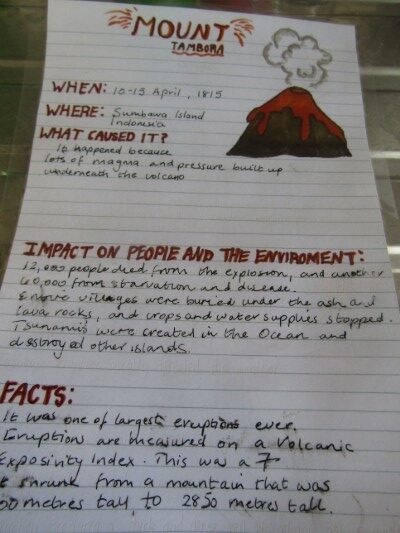 MOUNT
TAMBORA
WHEN: 10-15 April, 1815
WHERE: Sumbawa Island
Indonesia
WHAT CAUSED IT?
It happened because
lots of magma and pressure built up
underneath the volcano
IMPACT ON PEOPLE AND THE ENVIROMENT:
12,000 people died from the explosion, and another
60,000 from starvation and disease.
Entire villages were buried under the ash and
lava rocks, and crops and water supplies stopped.
Tsunamis were created in the Ocean and
destroyed other islands.
FACTS:
It was one of largest eruptions ever.
Eruption are measured on a Volcanic
Exposivity Index. This was a 7
t shrunk from a mountain that was
00 metres tall, to 2850 metres tall.